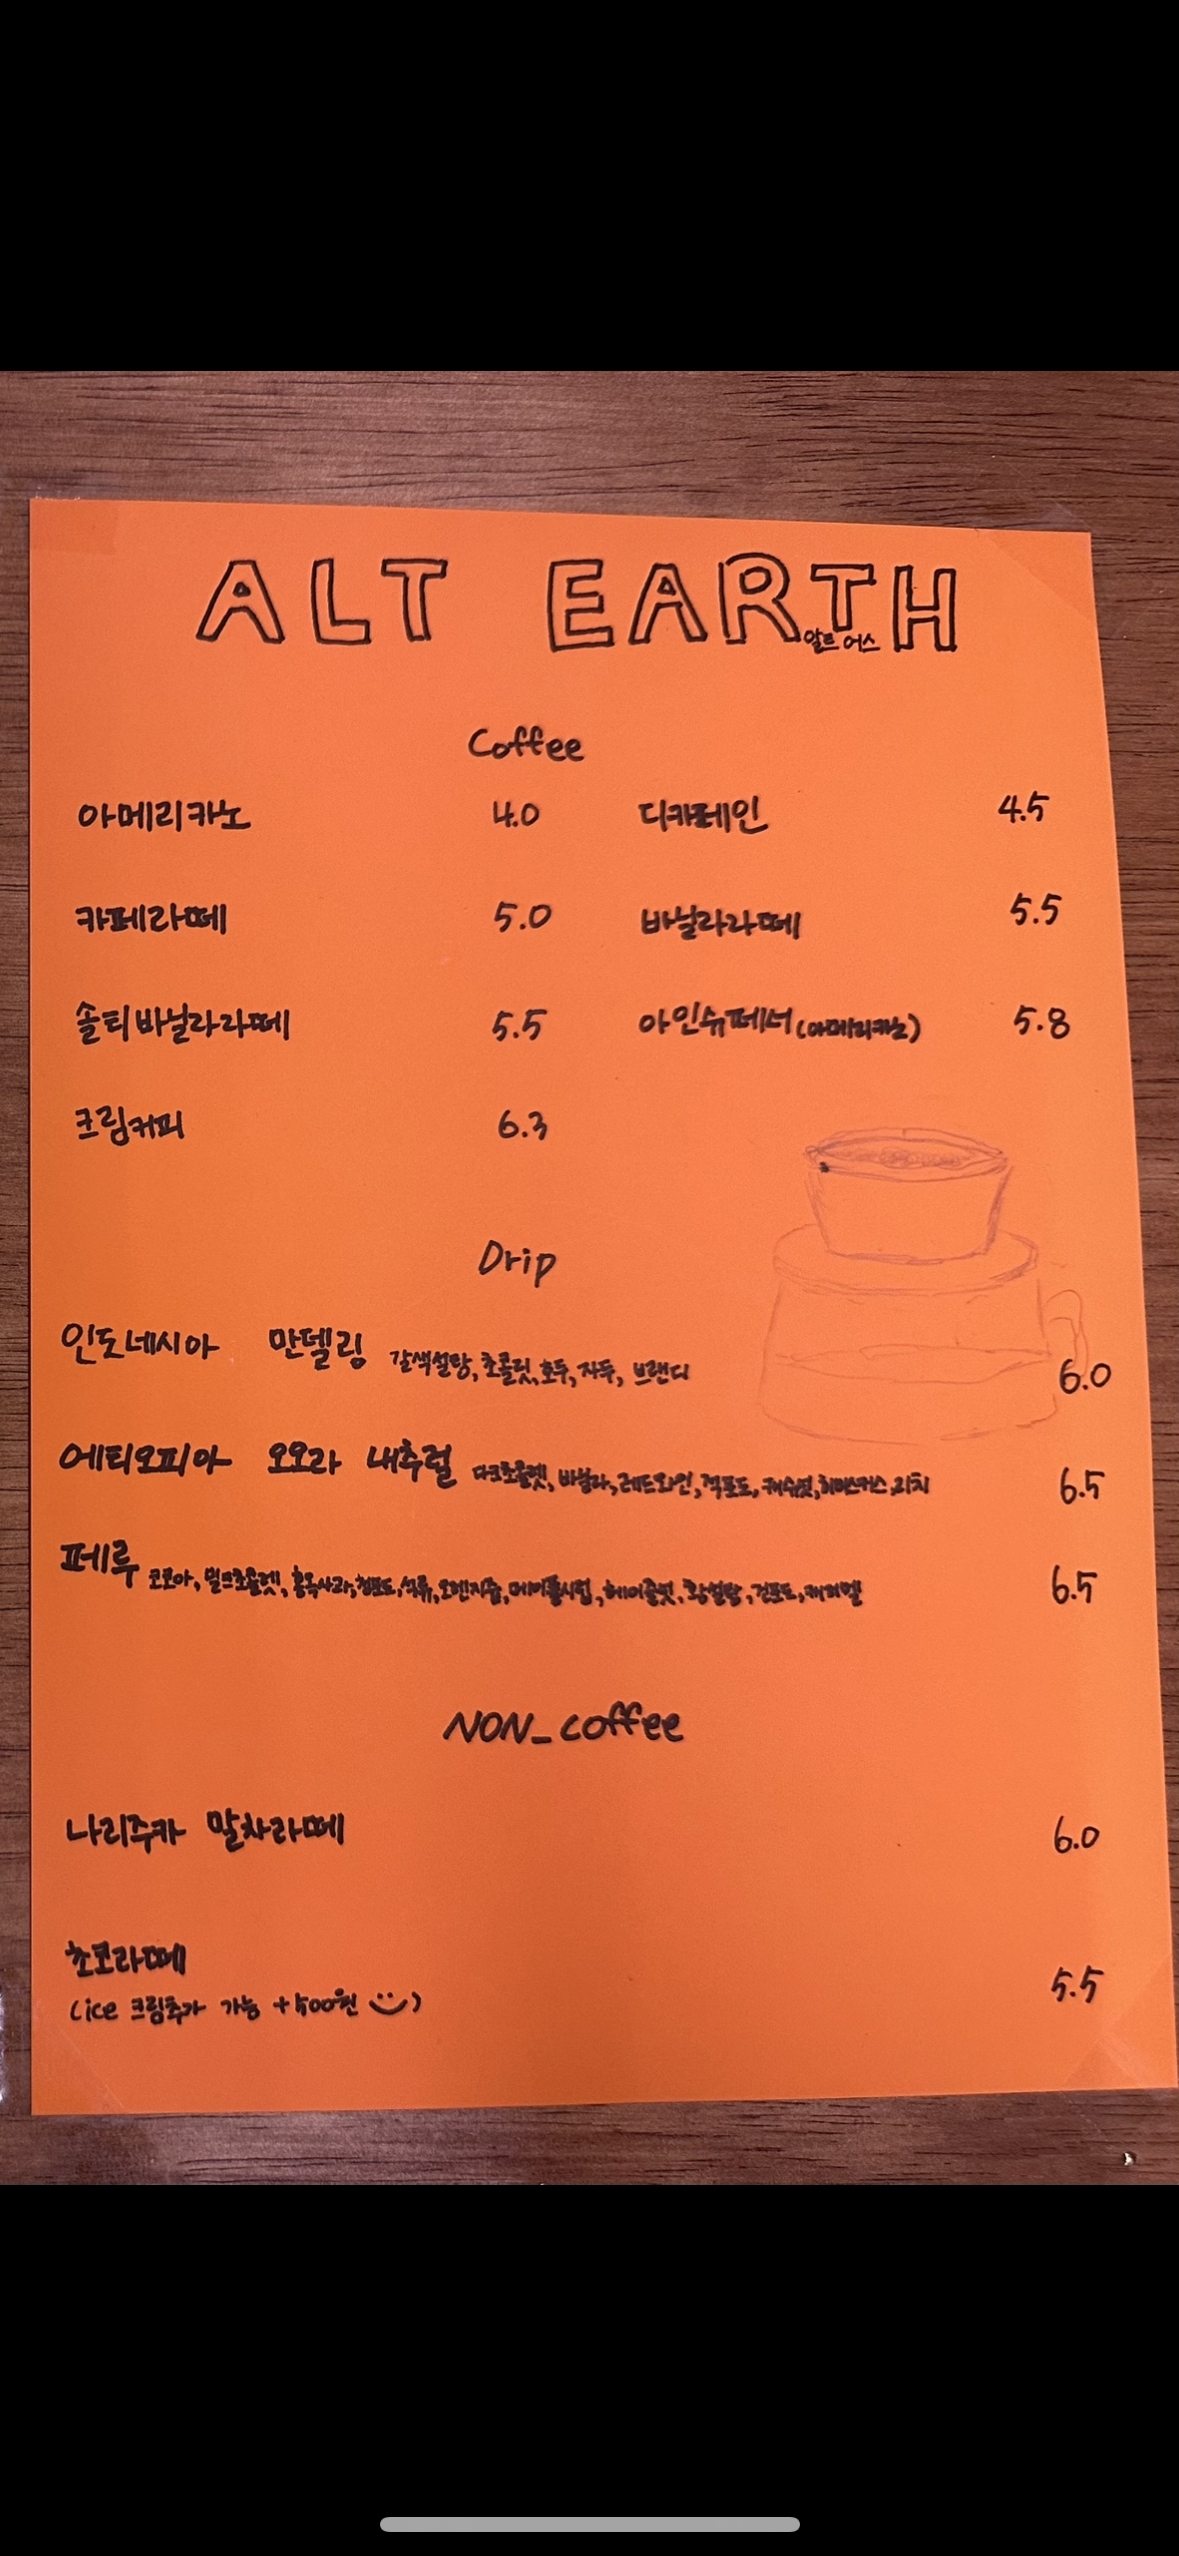 ALT EARTH
알트 어스
Coffee
아메리카노 4.0 디카페인 4.5
카페라떼 5.0 바닐라라떼 5.5
솔티바닐라라떼 5.5 아인슈페너(아메리카노) 5.8
크림커피 6.3
Drip
인도네시아 만델링 갈색설탕, 초콜릿, 호두, 자두, 브랜디 6.0
에티오피아 오오라 내추럴 다크초콜렛, 바닐라, 레드와인, 적포도, 캐슈넛, 히비스커스, 리치 6.5
페루 코코아, 밀크초콜렛, 홍옥사과, 청포도, 석류, 오렌지즙, 메이플시럽, 헤이즐넛, 황설탕, 건포도, 캐러멜 6.5
NON_coffee
나리주카 말차라떼 6.0
초코라떼 5.5
(ice 크림추가 가능 +500원 :))